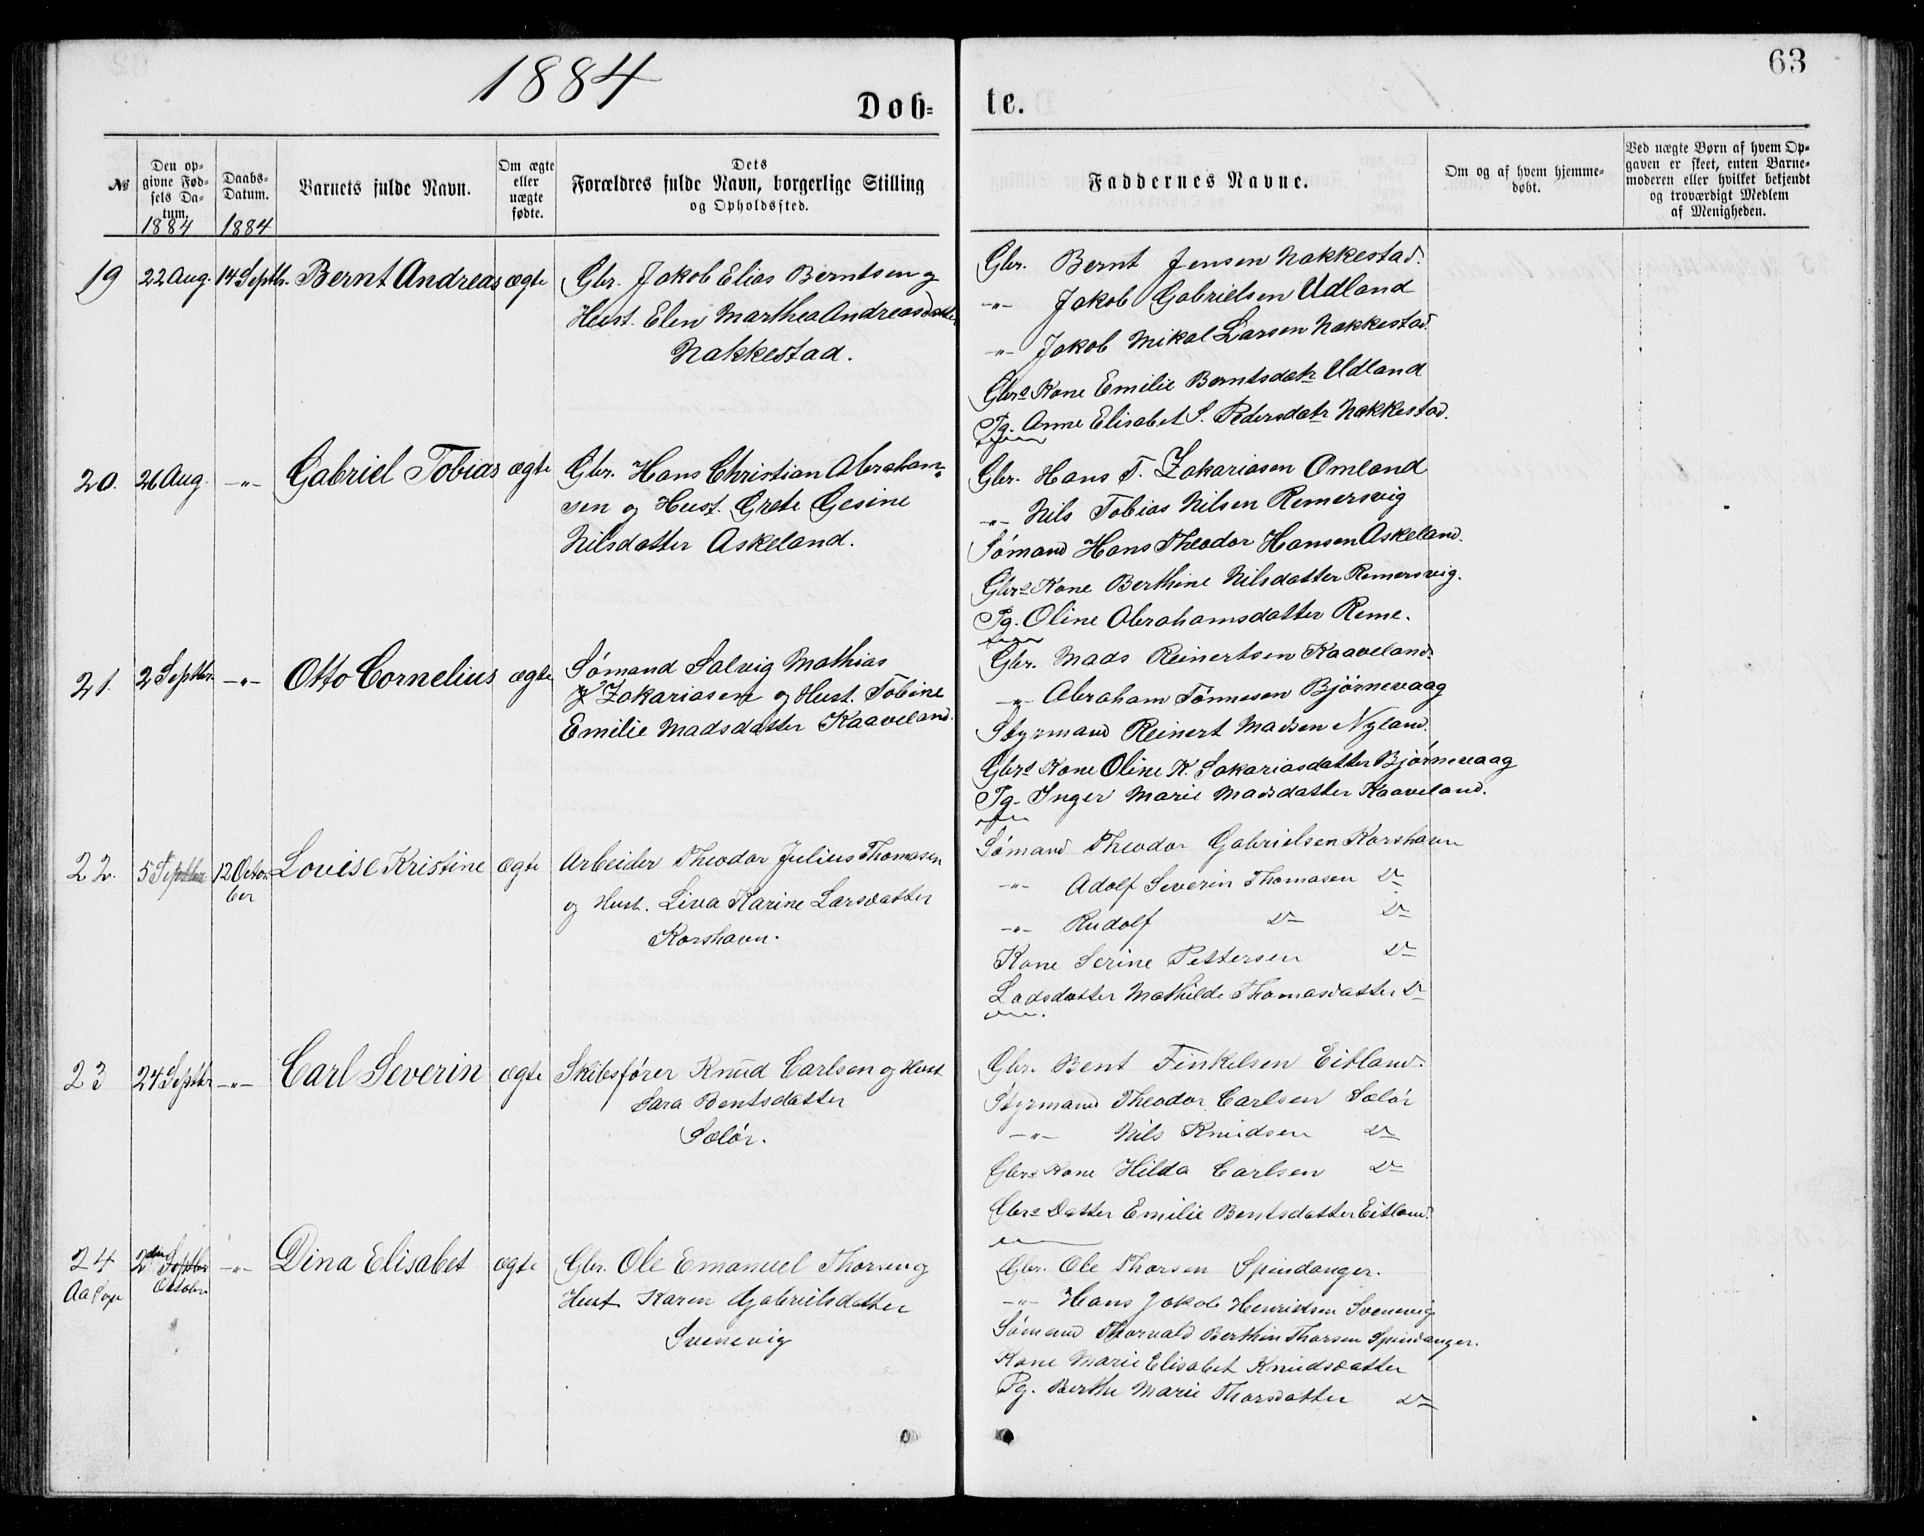 1884
63
Døb=
te.
№
Den op=
givne Fød=
sels Da=
tum.
1884
Daabs=
Datum.
1884
Barnets fulde Navn.
Om ægte
eller
uægte
fødte.
Dets
Forældres fulde Navn, borgerlige Stilling
og Opholdssted.
Faddernes Navne.
Om og af hvem hjemme=
døbt.
Ved uægte Børn af hvem Op=
gaven er skeet, enten Barne=
moderen eller hvilket bekjendt
og troværdigt Medlem
af Menigheden.
19 22 Aug. 14 Septbr. Bernt Andreas ægte
Gbr. Jakob Elias Berntsen og
Hust. Elen Marthea Andreasdatter
Nakkestad.
Gbr. Bernt Jensen Nakkestad.
-"- Jakob Gabrielsen Udland
-"- Jakob Mikal Larsen Nakkestad.
Gbrs Kone Emilie Berntsdatr Udland
Pg. Anne Elisabet S. Pedersdatr Nakkestad.
20. 26 Aug. -"- Gabriel Tobias ægte
Gbr. Hans Christian Abraham=
sen og Hust. Grete Gesine
Nilsdatter Askeland.
Gbr. Hans T. Zakariasen Omland
-"- Nils Tobias Nilsen Remersvig
Sømand Hans Theodor Hansen Askeland.
Gbrs Kone Berthine Nilsdatter Remersvig.
Pg. Oline Abrahamsdatter Reme.
21. 2 Septbr. -"- Otto Cornelius ægte
Sømand Salvig Mathias
Zakariasen og Hust. Tobine
Emilie Madsdatter Kaaveland.
Gbr. Mads Reinertsen Kaaveland.
-"- Abraham Tønnesen Bjørnevaag
Styrmand Reinert Madsen Nyland.
Gbrs Kone Oline K. Sakariasdatter Bjørnevaag
Pg. Inger Marie Madsdatter Kaaveland.
22. 5 Septbr 12 Octo=
ber
Louise Kristine ægte
Arbeider Theodor Julius Thomasen
og Hust. Liva Karine Larsdatter
Korshavn.
Sømand Theodor Gabrielsen Korshavn
-"- Adolf Severin Thomasen Do
-"- Rudolf Do Do
Kone Serine Pettersen Do
Lodsdatter Mathilde Thomasdatter Do
23 24 Septbr -"- Carl Severin ægte
Skibsfører Knud Carlsen og Hust
Sara Bentsdatter
Sælør.
Gbr. Bent Finkelsen Eitland.
Styrmand Theodor Carlsen Sælør
-"- Nils Knudsen Do
Gbrs Kone Hilda Carlsen Do
Gbrs Datter Emilie Bentsdatter Eitland.
24 2den Septbr -"- Dina Elisabet ægte
October
Gbr. Ole Emanuel Thorsen og
Hust Karen Gabrielsdatter
Svenevig
Gbr. Ole Thorsen Spindanger.
-"- Hans Jakob Henriksen Svenevig
Sømand Thorvald Berthin Thorsen Spindanger.
Kone Marie Elisabet Knudsdatter
Pg. Berthe Marie Thorsdatter Do